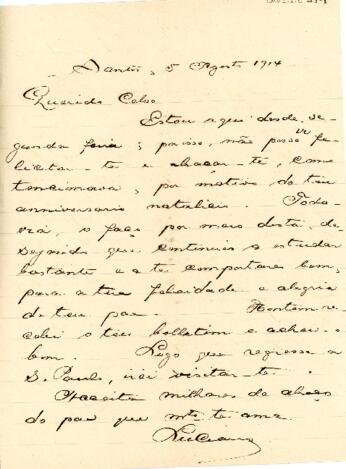 Santos, 5 Agosto 1914
Querido Celso
Estou aqui desde se-
gunda feira; por isso, não posso fe-
licitar-te e abraçar-te, como
tencionava, por motivo do teu
anniversario natalicio. Toda-
via, o faço por meio desta, de-
sejando que continúes a estudar
bastante e a te comportares bem,
para a tua felicidade e alegria
de teu pae. Hontem re-
cebi o teu bolletim e achei-o
bom. Logo que regresse a
S. Paulo, irei visitar-te.
Acceita milhares de abraços
do pae que mto te ama.
Luciano